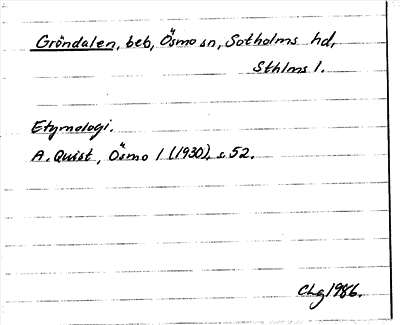 Gröndalen, beb, Ösmo sn, Sotholms hd,
Sthlms l.
Etymologi.
A. Quist, Ösmo 1 (1930), s 52.
CLg 1986.